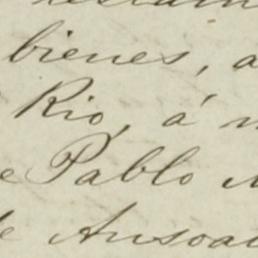 bienes, a
Rio, á
e Pablo
de Ansoa